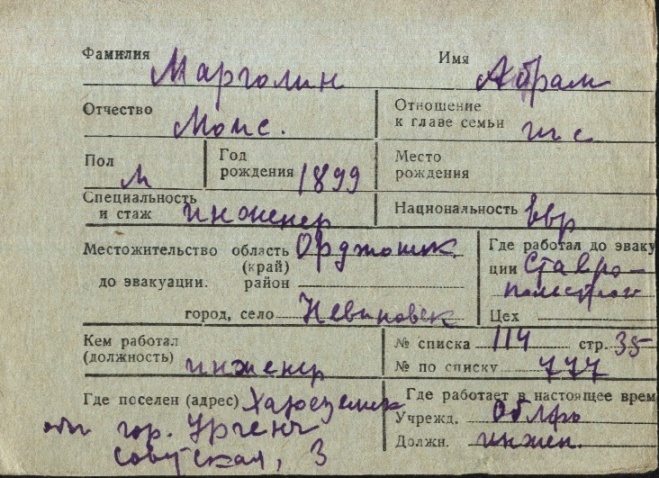 Фамилия Марголин Имя Абрам
Отчество Моис. Отношение к главе семьи
Пол М Год рождения 1899 Место рождения
Специальность и стаж инженер Национальность евр
Местожительство область (край) Орджоник. Где работал до эваку
до эвакуации. район ции Ставро-
польстрой
город, село Невиновск Цех
Кем работал (должность) инженер № списка 114 стр. 35
№ по списку 777
Где поселен (адрес) Где работает в настоящее врем
гор. Ургенч Учрежд.
Советская, 3 Должн. инжен.